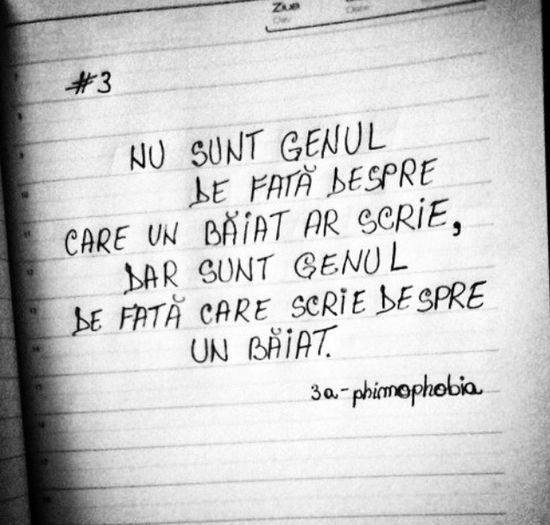 Ziua
#3
NU SUNT GENUL
DE FATĂ DESPRE
CARE UN BĂiAT AR SCRiE,
DAR SUNT GENUL
DE FATĂ CARE SCRiE DESPRE
UN BĂiAT.
3a-phimophobia